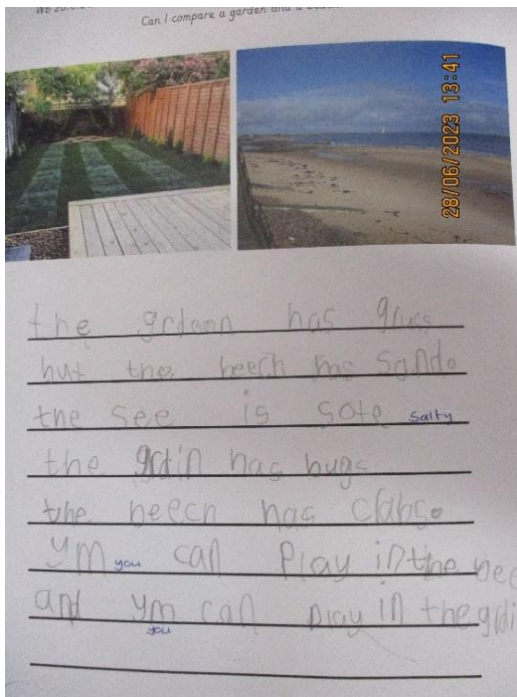 Can I compare a garden and a
28/06/2023 13:41
the grdaon has gruss
but the beech has sand.
the see is sote salty
the grdin has bugs
the beech has clabs.
ym you can Play in the bee
and ym can play in the grdi
you